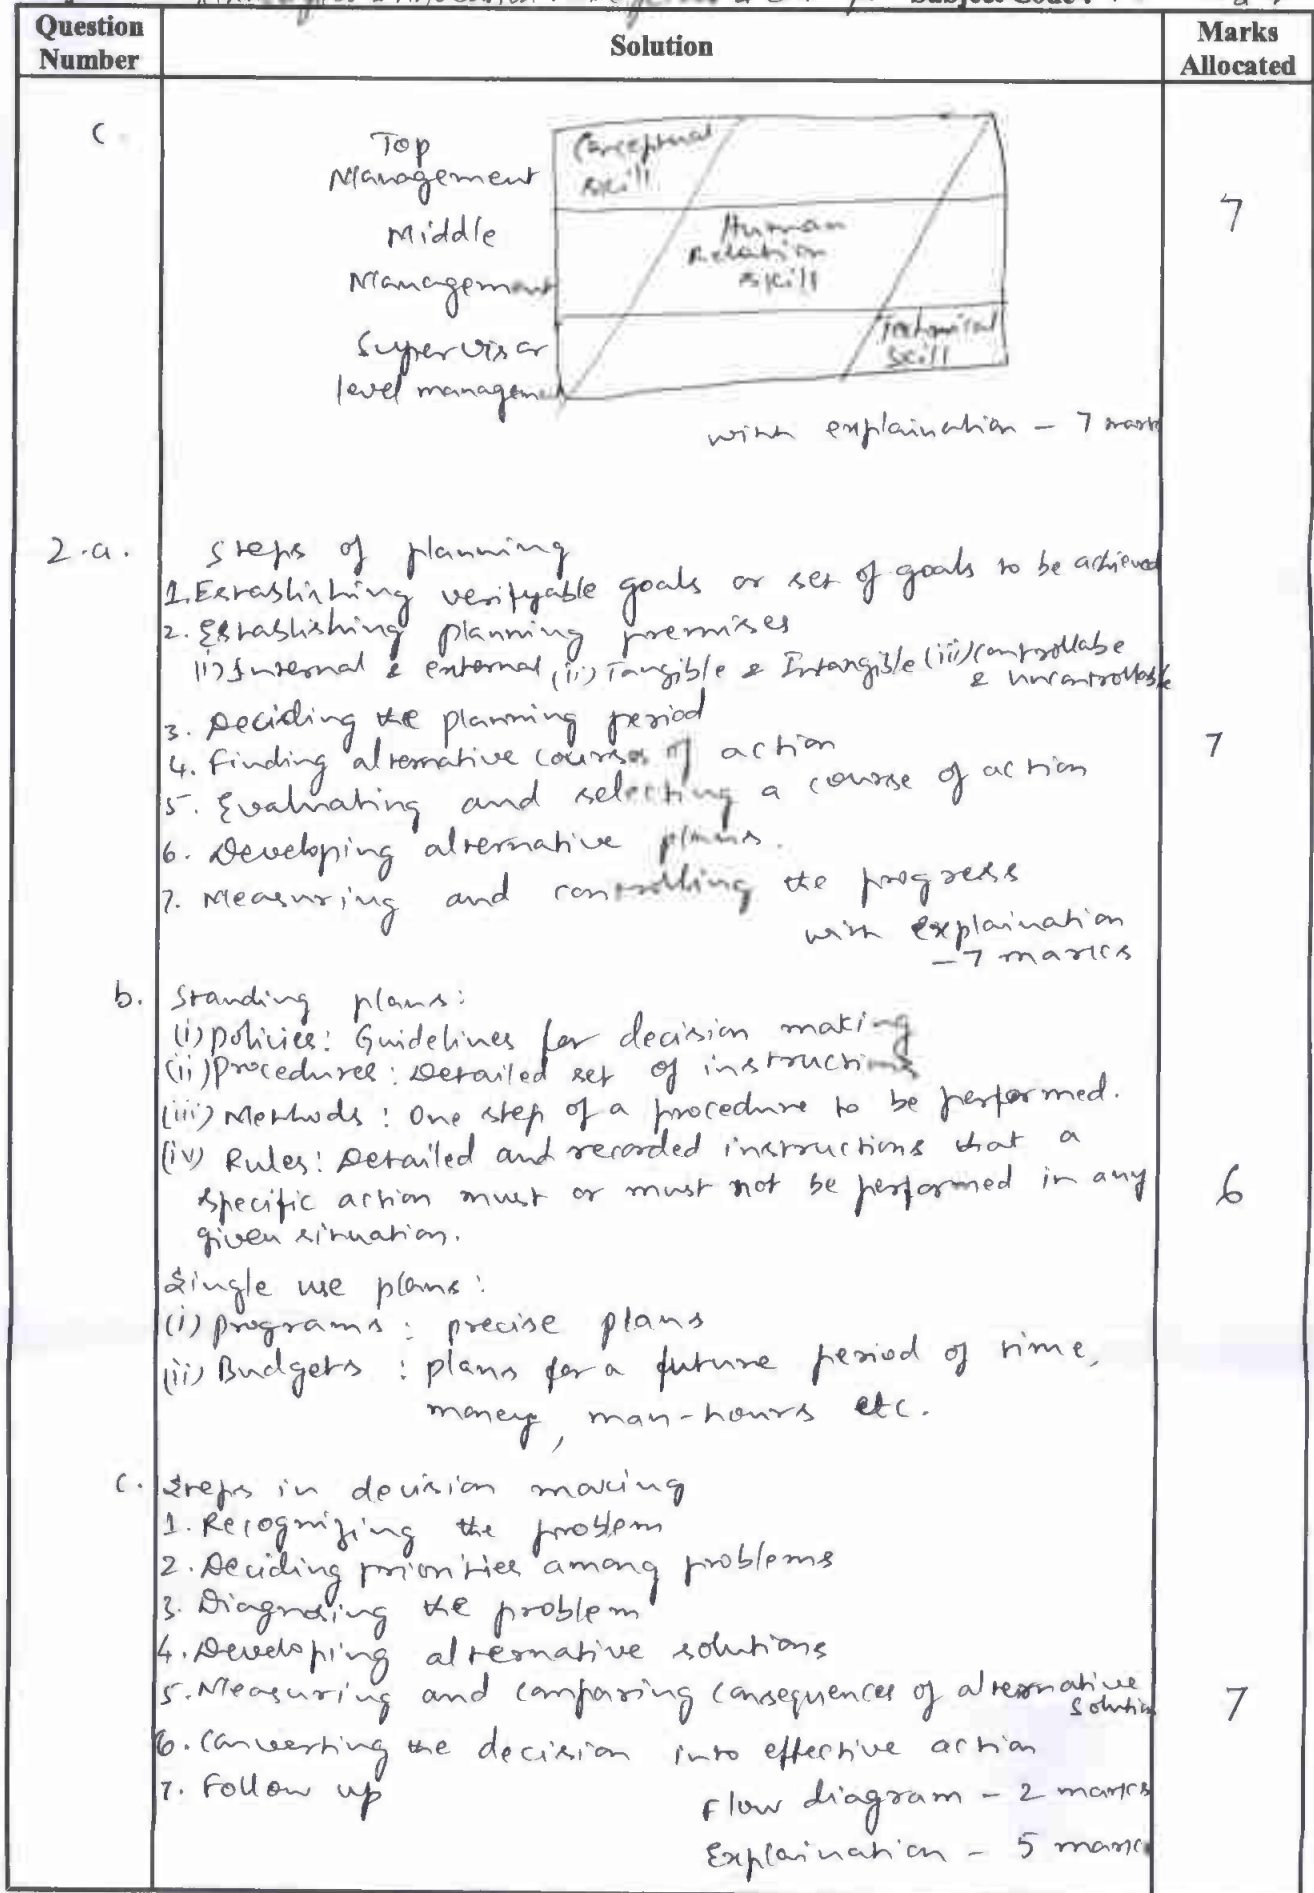 Subject Code :
Question Number
Solution
Marks Allocated
c.
Top
Management
Middle
Management
Supervisor
level managem
Conceptual
skill
Human
Relation
skill
Technical
skill
7
with explaination - 7 mark
2.a.
Steps of planning
1. Establishing verifyable goals or set of goals to be achieved
2. Establishing planning premises
(i) Internal & external (ii) Tangible & Intangible (iii) controllabe
& uncontrollable
3. Deciding the planning period
4. Finding alternative courses of action
7
5. Evaluating and selecting a course of action
6. Developing alternative plans.
7. Measuring and controlling the progress
with explaination
- 7 marks
b.
Standing plans:
(i) policies: Guidelines for decision making
(ii) procedures: Detailed set of instructions
(iii) Methods: One step of a procedure to be performed.
(iv) Rules: Detailed and recorded instructions that a
specific action must or must not be performed in any
6
given situation.
Single use plans:
(i) programs: precise plans
(ii) Budgets : plans for a future period of time,
money, man-hours etc.
c.
Steps in decision making
1. Recognizing the problem
2. Deciding priorities among problems
3. Diagnosing the problem
4. Developing alternative solutions
5. Measuring and comparing consequences of alternative
solution
7
6. Converting the decision into effective action
7. Follow up
Flow diagram - 2 marks
Explaination - 5 marks